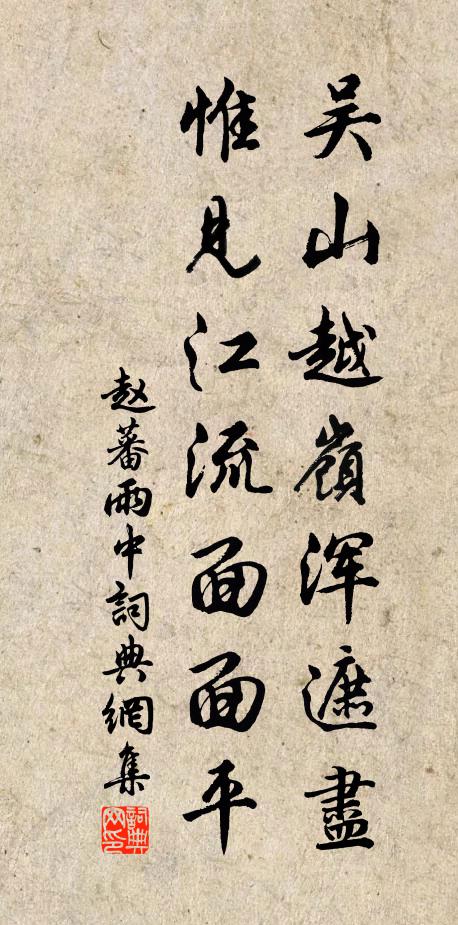 吴山越嶺浑遮盡
惟見江流面面平
赵蕃雨中詞典網集
詞典网印